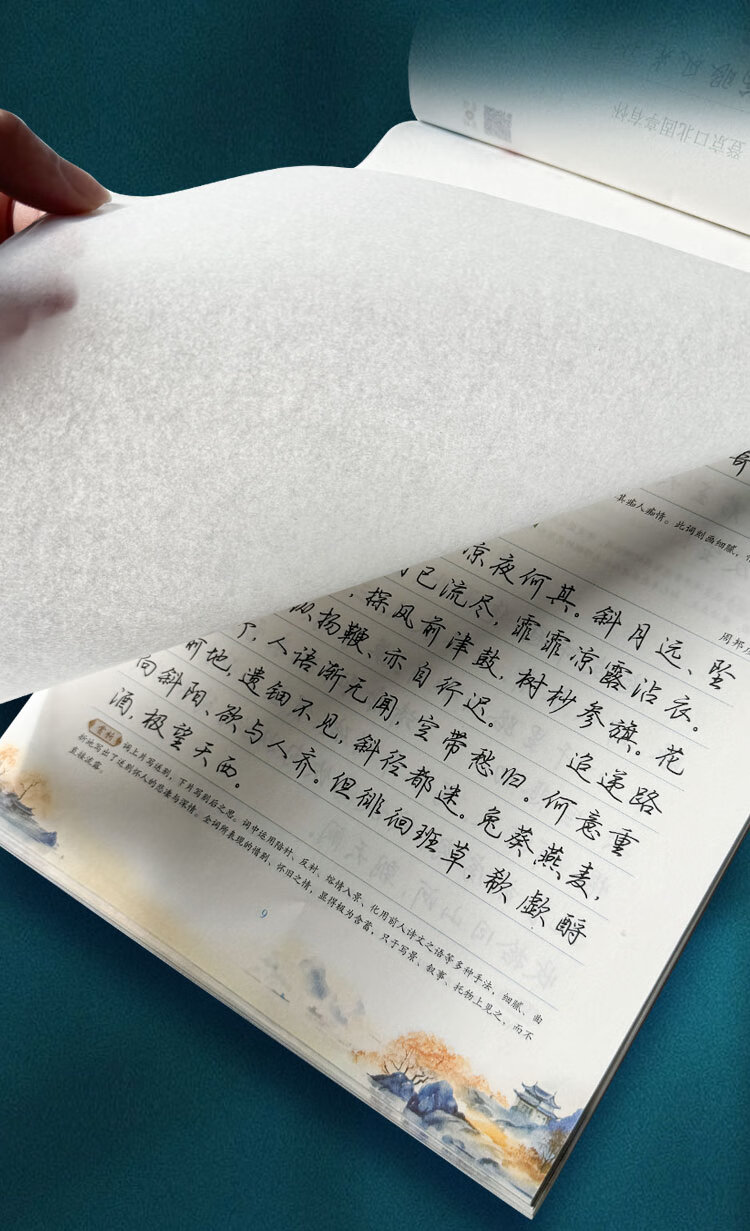 登京口北固亭有怀
眼风光
痴人痴情。此词刻画细腻，
周邦
凉夜何其。斜月远、坠
已流尽，霏霏凉露沾衣。
，探风前津鼓，树杪参旗。花
扬鞭、亦自行迟。 迢递路
，人语渐无闻，空带愁归。何意重
前地，遗钿不见，斜径都迷。兔葵燕麦，
向斜阳、欲与人齐。但徘徊班草，欷歔酹
酒，极望天西。
赏析 词上片写送别，下片写别后之思。词中运用陪衬、反衬、熔情入景、化用前人诗文之语等多种手法，细腻、曲
折地写出了送别怀人的悲凄与深情。全词所表现的惜别、怀旧之情，显得极为含蓄，只于写景、叙事、托物上见之，而不
直接流露。
9